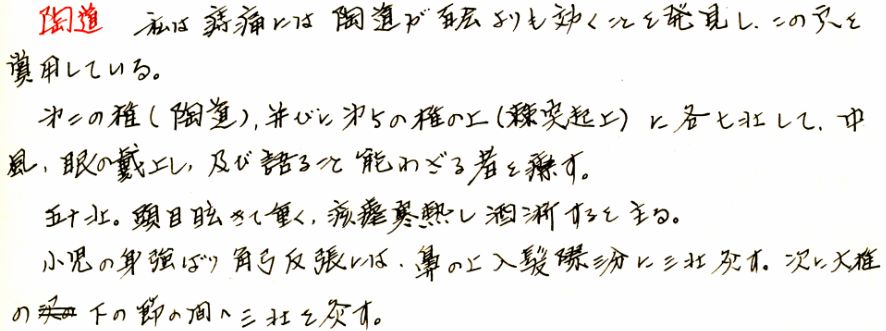 陶道 私は痔痛には陶道が百会よりも効くことを発見し、この穴を
賞用している。
次二の椎(陶道)、并びに次5の椎の上(棘突起上)に各七壮して、中
風、眼の戴上し、及び語ること能わざる者を療す。
五十壮。頭目眩きて重く、痎瘧寒熱し洒淅するを主る。
小児の身強ばり角弓反張には、鼻の上入髪際三分に三壮灸す。次に大椎
の下の節の間へ三壮を灸す。